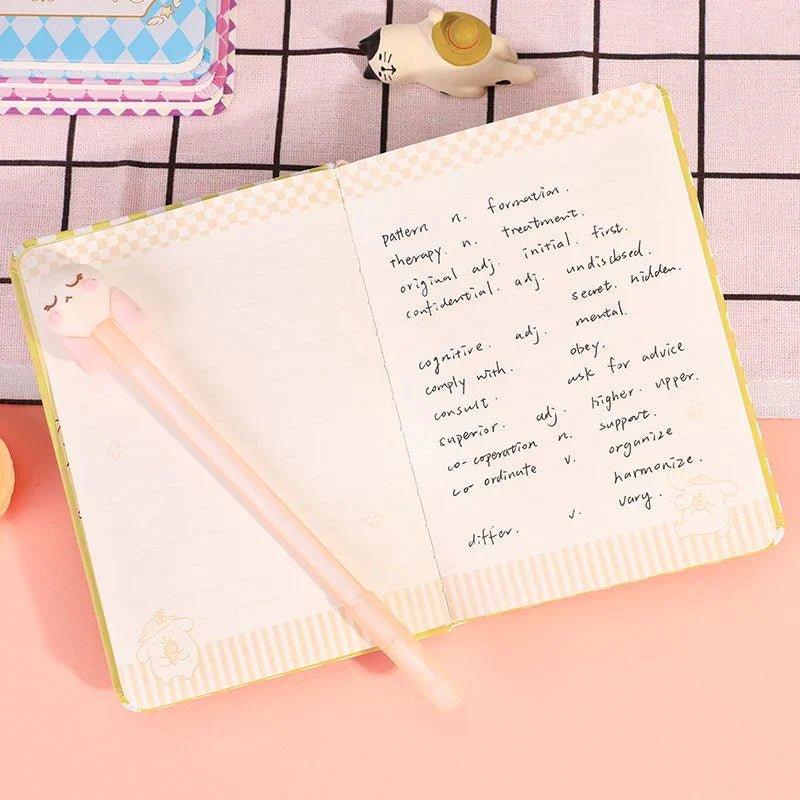 pattern n. formation.
therapy. n. treatment.
original adj. initial. first.
confidential. adj. undisclosed.
secret. hidden.
cognitive. adj. mental.
comply with. obey.
consult. ask for advice
superior. adj. higher. upper.
co-coperation n. support.
co-ordinate v. organize
harmonize.
differ. v. vary.